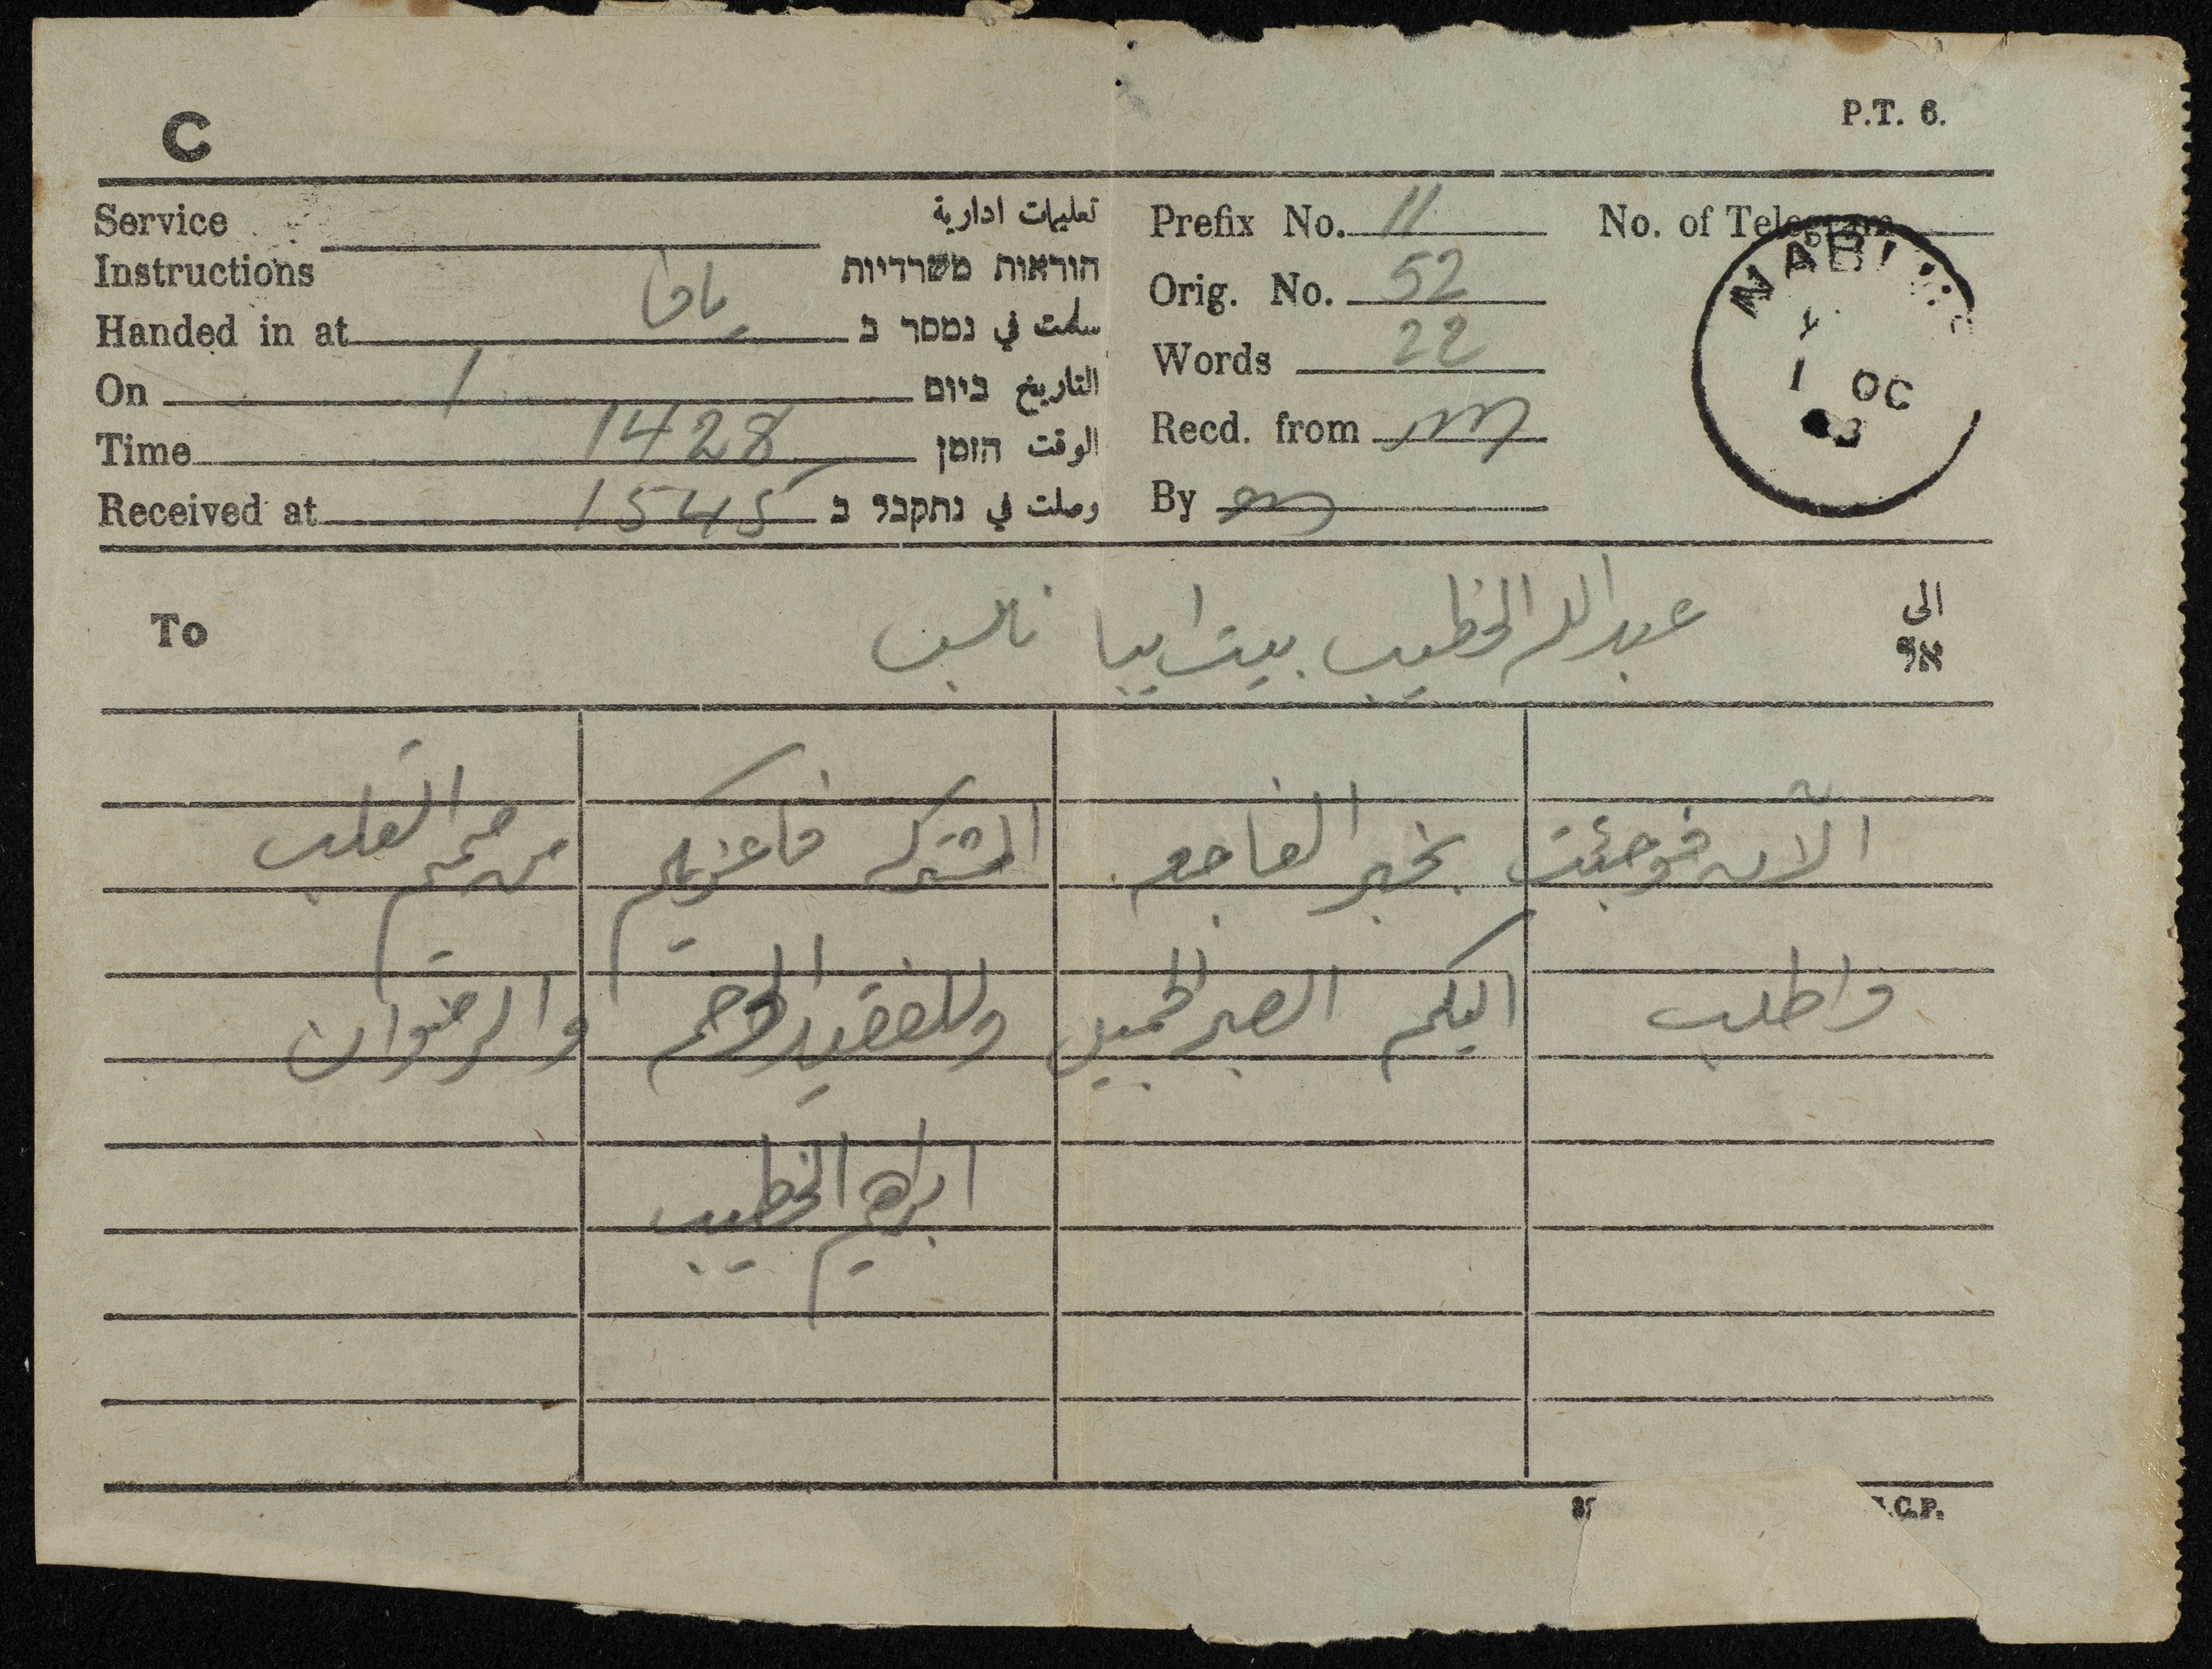 C
P.T. 6.
Service Instructions تعليمات ادارية
הוראות משרדיות
Handed in at يافا سلمت في נמסר ב
On 1 التاريخ ביום
Time 1428 الوقت הזמן
Received at 1545 وصلت في נתקבל ב
Prefix No. 11
Orig. No. 52
Words 22
Recd. from
By
No. of Telegram
NABLUS
1 OC
To عبد الله الخطيب بيت ايبا نابلس الى
אל
الآن فوجئت بخبر الفاجعه المشتركه فاعزيكم من صميم القلب
واطلب اليكم الصبر الجميل وللفقيد الرحمه والرضوان
ابراهيم الخطيب
.C.P.